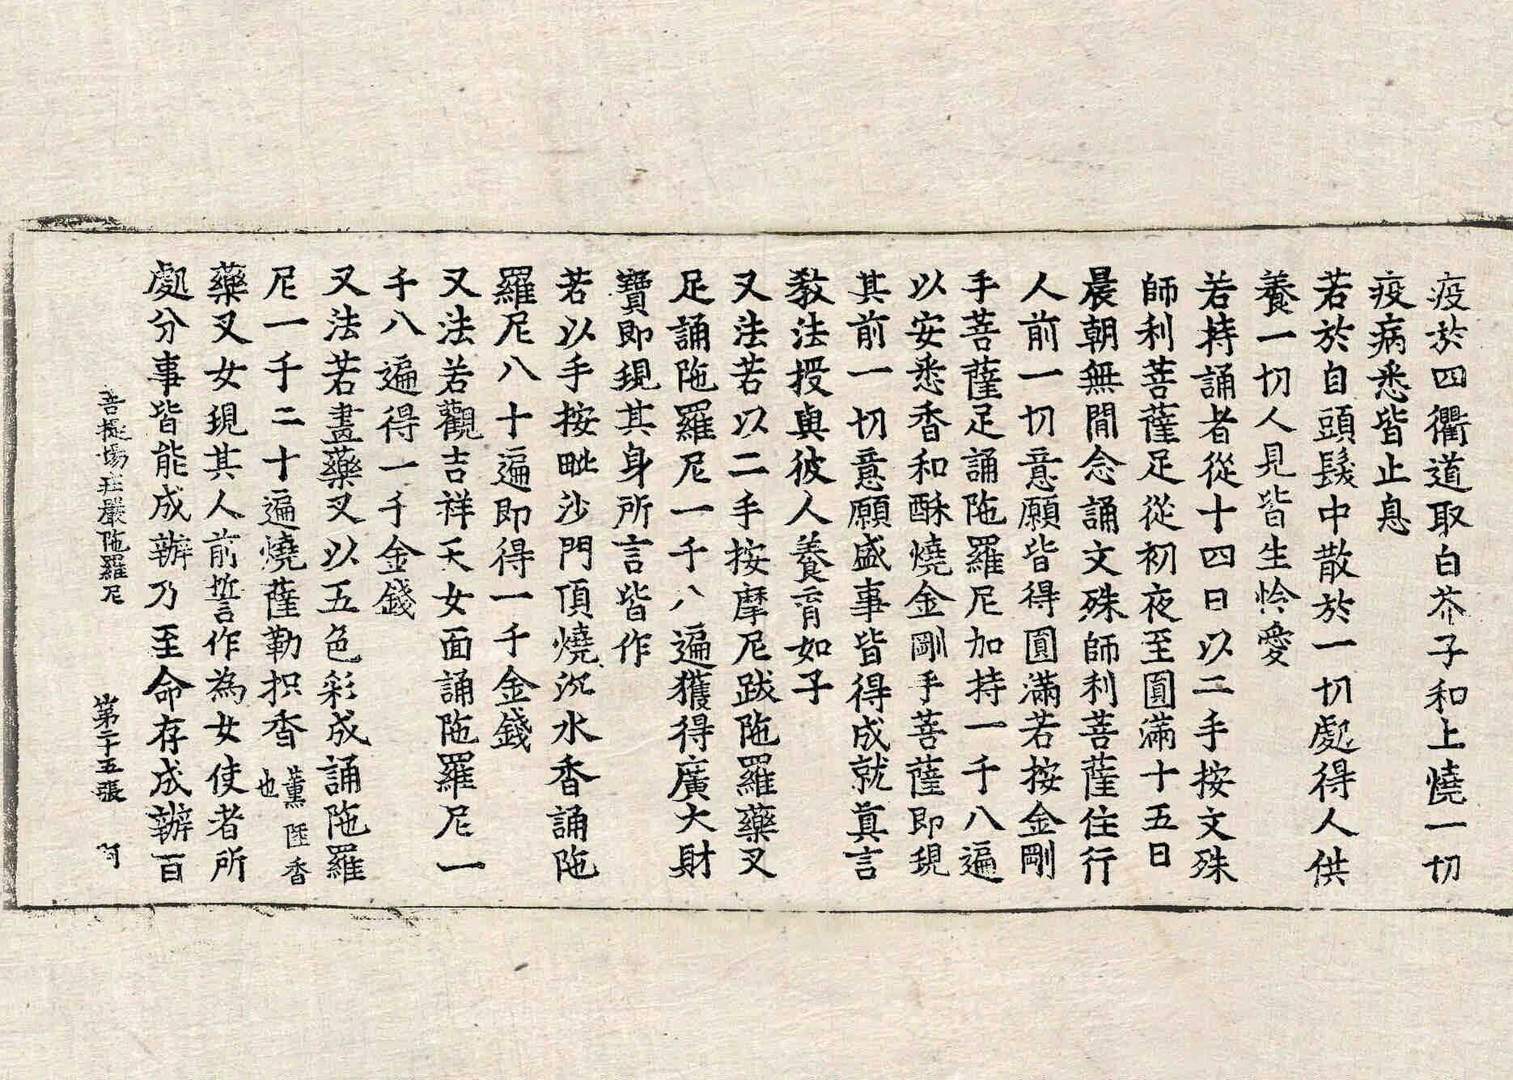 疫於四衢道取白芥子和上燒一切
疫病悉皆止息
若於自頭髮中散於一切處得人供
養一切人見皆生怜愛
若持誦者從十四日以二手按文殊
師利菩薩足從初夜至圓滿十五日
晨朝無間念誦文殊師利菩薩住行
人前一切意願皆得圓滿若按金剛
手菩薩足誦陁羅尼加持一千八遍
以安悉香和酥燒金剛手菩薩即現
其前一切意願盛事皆得成就真言
教法授與彼人養育如子
又法若以二手按摩尼跋陁羅藥叉
足誦陁羅尼一千八遍獲得廣大財
寶即現其身所言皆作
若以手按毗沙門頂燒沉水香誦陁
羅尼八十遍即得一千金錢
又法若觀吉祥天女面誦陁羅尼一
千八遍得一千金錢
又法若畫藥叉以五色彩成誦陁羅
尼一千二十遍燒薩勒抧香薰陸香也
藥叉女現其人前誓言作為女使者所
處分事皆能成辦乃至命存成辦百
菩提場莊嚴陁羅尼 第二十五張 阿